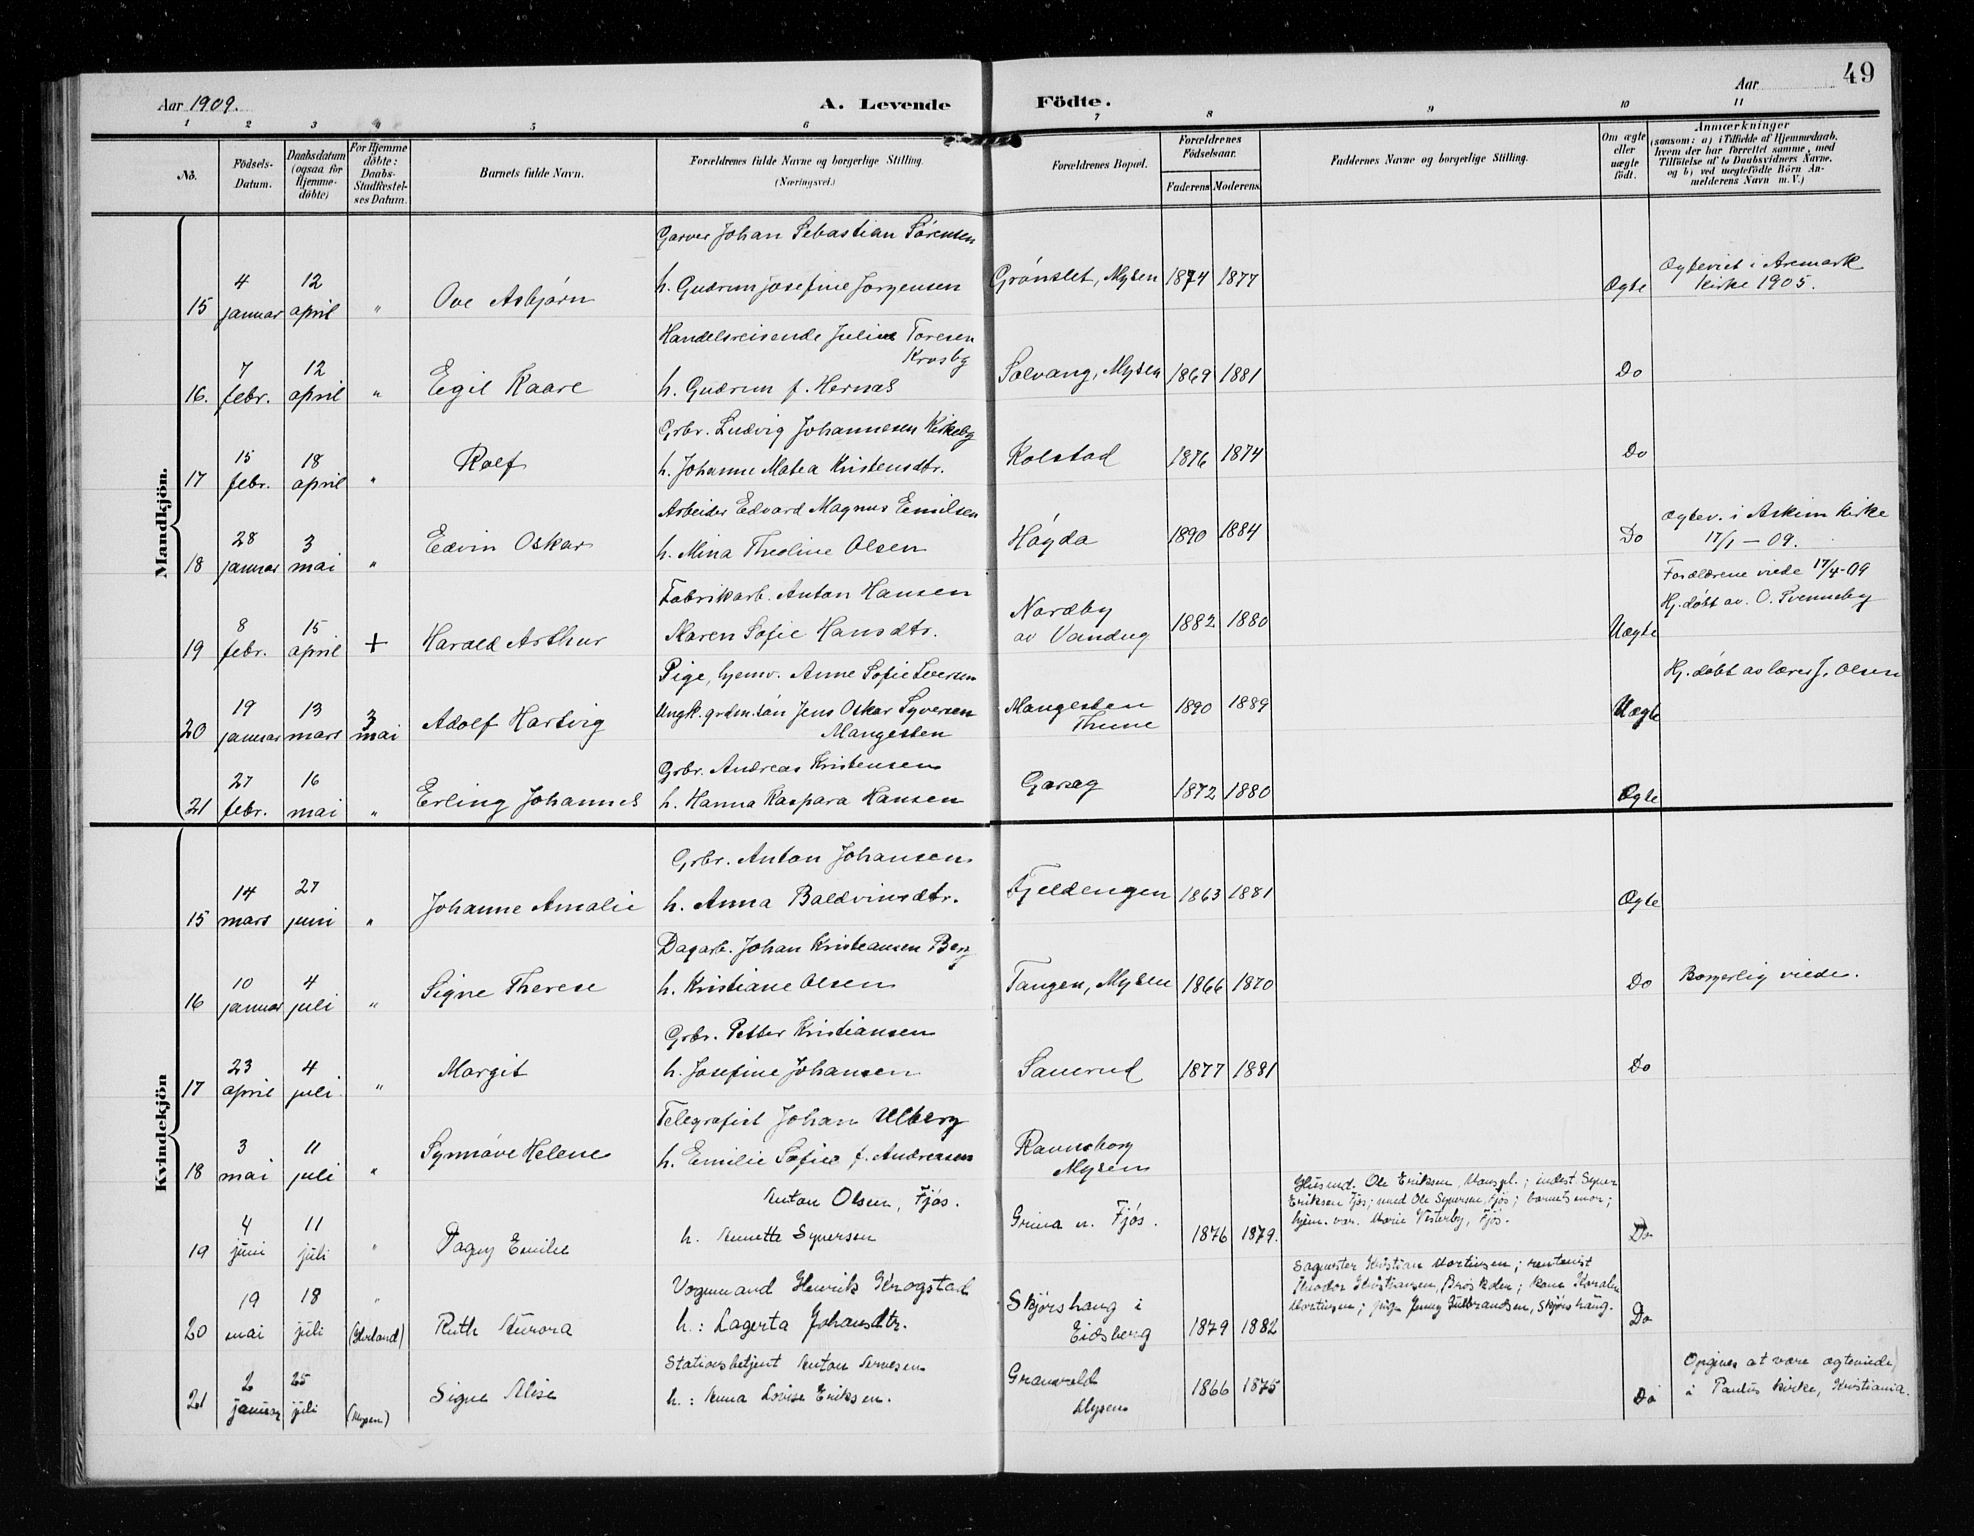 49
Aar 1909. A. Levende Födte. Aar
1 2 3 4 5 6 7 8 9 10 11
No.
Födsels-
Datum.
Daabsdatum
(ogsaa for
Hjemme-
döbte)
For Hjemme
döbte:
Daabs-
Stadfæstel-
ses Datum.
Barnets fulde Navn.
Forældrenes fulde Navne og borgerlige Stilling.
(Næringsvei.)
Forældrenes Bopæl.
Forældrenes
Födselsaar.
Faderens Moderens
Faddernes Navne og borgerlige Stilling.
Om ægte
eller
uægte
födt.
Anmærkninger
(saasom: a) i Tilfælde af Hjemmedaab,
hvem der har forrettet samme, med
Tilföielse af to Daabsvidners Navne,
og b) ved uægtefödte Börn An-
melderens Navn m. V.)
Mandkjön.
Garver Johan Sebastian Sörensen
15 4 januar 12 april " Ove Asbjørn h. Gudrun Josefine Jørgensen Grönslet, Mysen 1874 1877 Ægte Ægteviet i Aremark
Kirke 1905.
Handelsreisende Julius Toresen
Krosby
16. 7 febr. 12 april " Egil Kaare h. Gudrun f. Hernæs Solvang, Mysen 1869 1881 Do
Grbr. Ludvig Johannesen Kirkeby
17 15 febr. 18 april " Rolf h. Johanne Matea Kristensdtr. Kolstad 1876 1874 Do
Arbeider Edvard Magnus Emilsen
18 28 januar 3 mai " Edvin Oskar h. Mina Theoline Olsen Høgda 1890 1884 Do Ægtev. i Askim Kirke
17/1 – 09.
Fabrikarb. Anton Hansen Forældrene viede 17/4-09
19 8 febr. 15 april + Harald Arthur Karen Sofie Hansdtr. Nordby
av Vandug 1882 1880 Uægte Hj. døbt av O. Svenneby
Pige, hjemv. Anne Sofie Iversen Hj. døbt av lærer J. Olsen
20 19 januar 13 mars 3 mai Adolf Hartvig Ungk. grdm.søn Jens Oskar Syversen
Mangesten Mangesten
Thune 1890 1889 Uægte
Grbr. Andreas Kristensen
21 27 febr. 16 mai " Erling Johannes h. Hanna Kaspara Hansen Garseg 1872 1880 Ægte
Kvindekjön
Grbr. Anton Johansen
15 14 mars 27 juni " Johanne Amalie h. Anna Baldvinsdtr. Fjeldengen 1863 1881 Ægte
Dagarb. Johan Kristiansen Berg
16 10 januar 4 juli " Signe Therese h. Kristiane Olsen Tangen, Mysen 1866 1870 Do Borgerlig viede.
Grbr. Petter Kristiansen
17 23 april 4 juli " Margit h. Josefine Johansen Sauerud 1877 1881 Do
Telegrafist Johan Ulberg
18 3 mai 11 juli " Synnøve Helene h. Emilie Sofie f. Andreasen Ravnsborg
Mysen
Anton Olsen, Fjøs.
19 4 juni 11 juli " Dagny Emilie h. Annette Syversen Grina u. Fjøs. 1876 1879. Husmd. Ole Eriksen, ; indest. Syver
Eriksen Fjøs; umd Ole Syversen, Fjøs; barnets mor;
hjem. var. Marie Vesterby, Fjøs. Do
Vognmand Henrik Krogstad
20 19 mai 18 juli " Ruth Aurora h.: Lagerta Johansdtr. Skjørshaug i
Eidsberg 1879 1882 Sagmester Kristian Mortensen; rentenist
Theodor Kristiansen, ; kone Karoline
Mortensen; pige Jenny Gulbrandsen, Skjørshaug. Do
Stationsbetjent Anton Arnesen
21 2 januar 25 juli (Mysen) Signe Alise h.: Anna Lovise Eriksen. Granvold
Mysen 1866 1875 Do Opgives at være ægteviede
i Paulus Kirke, Kristiania.